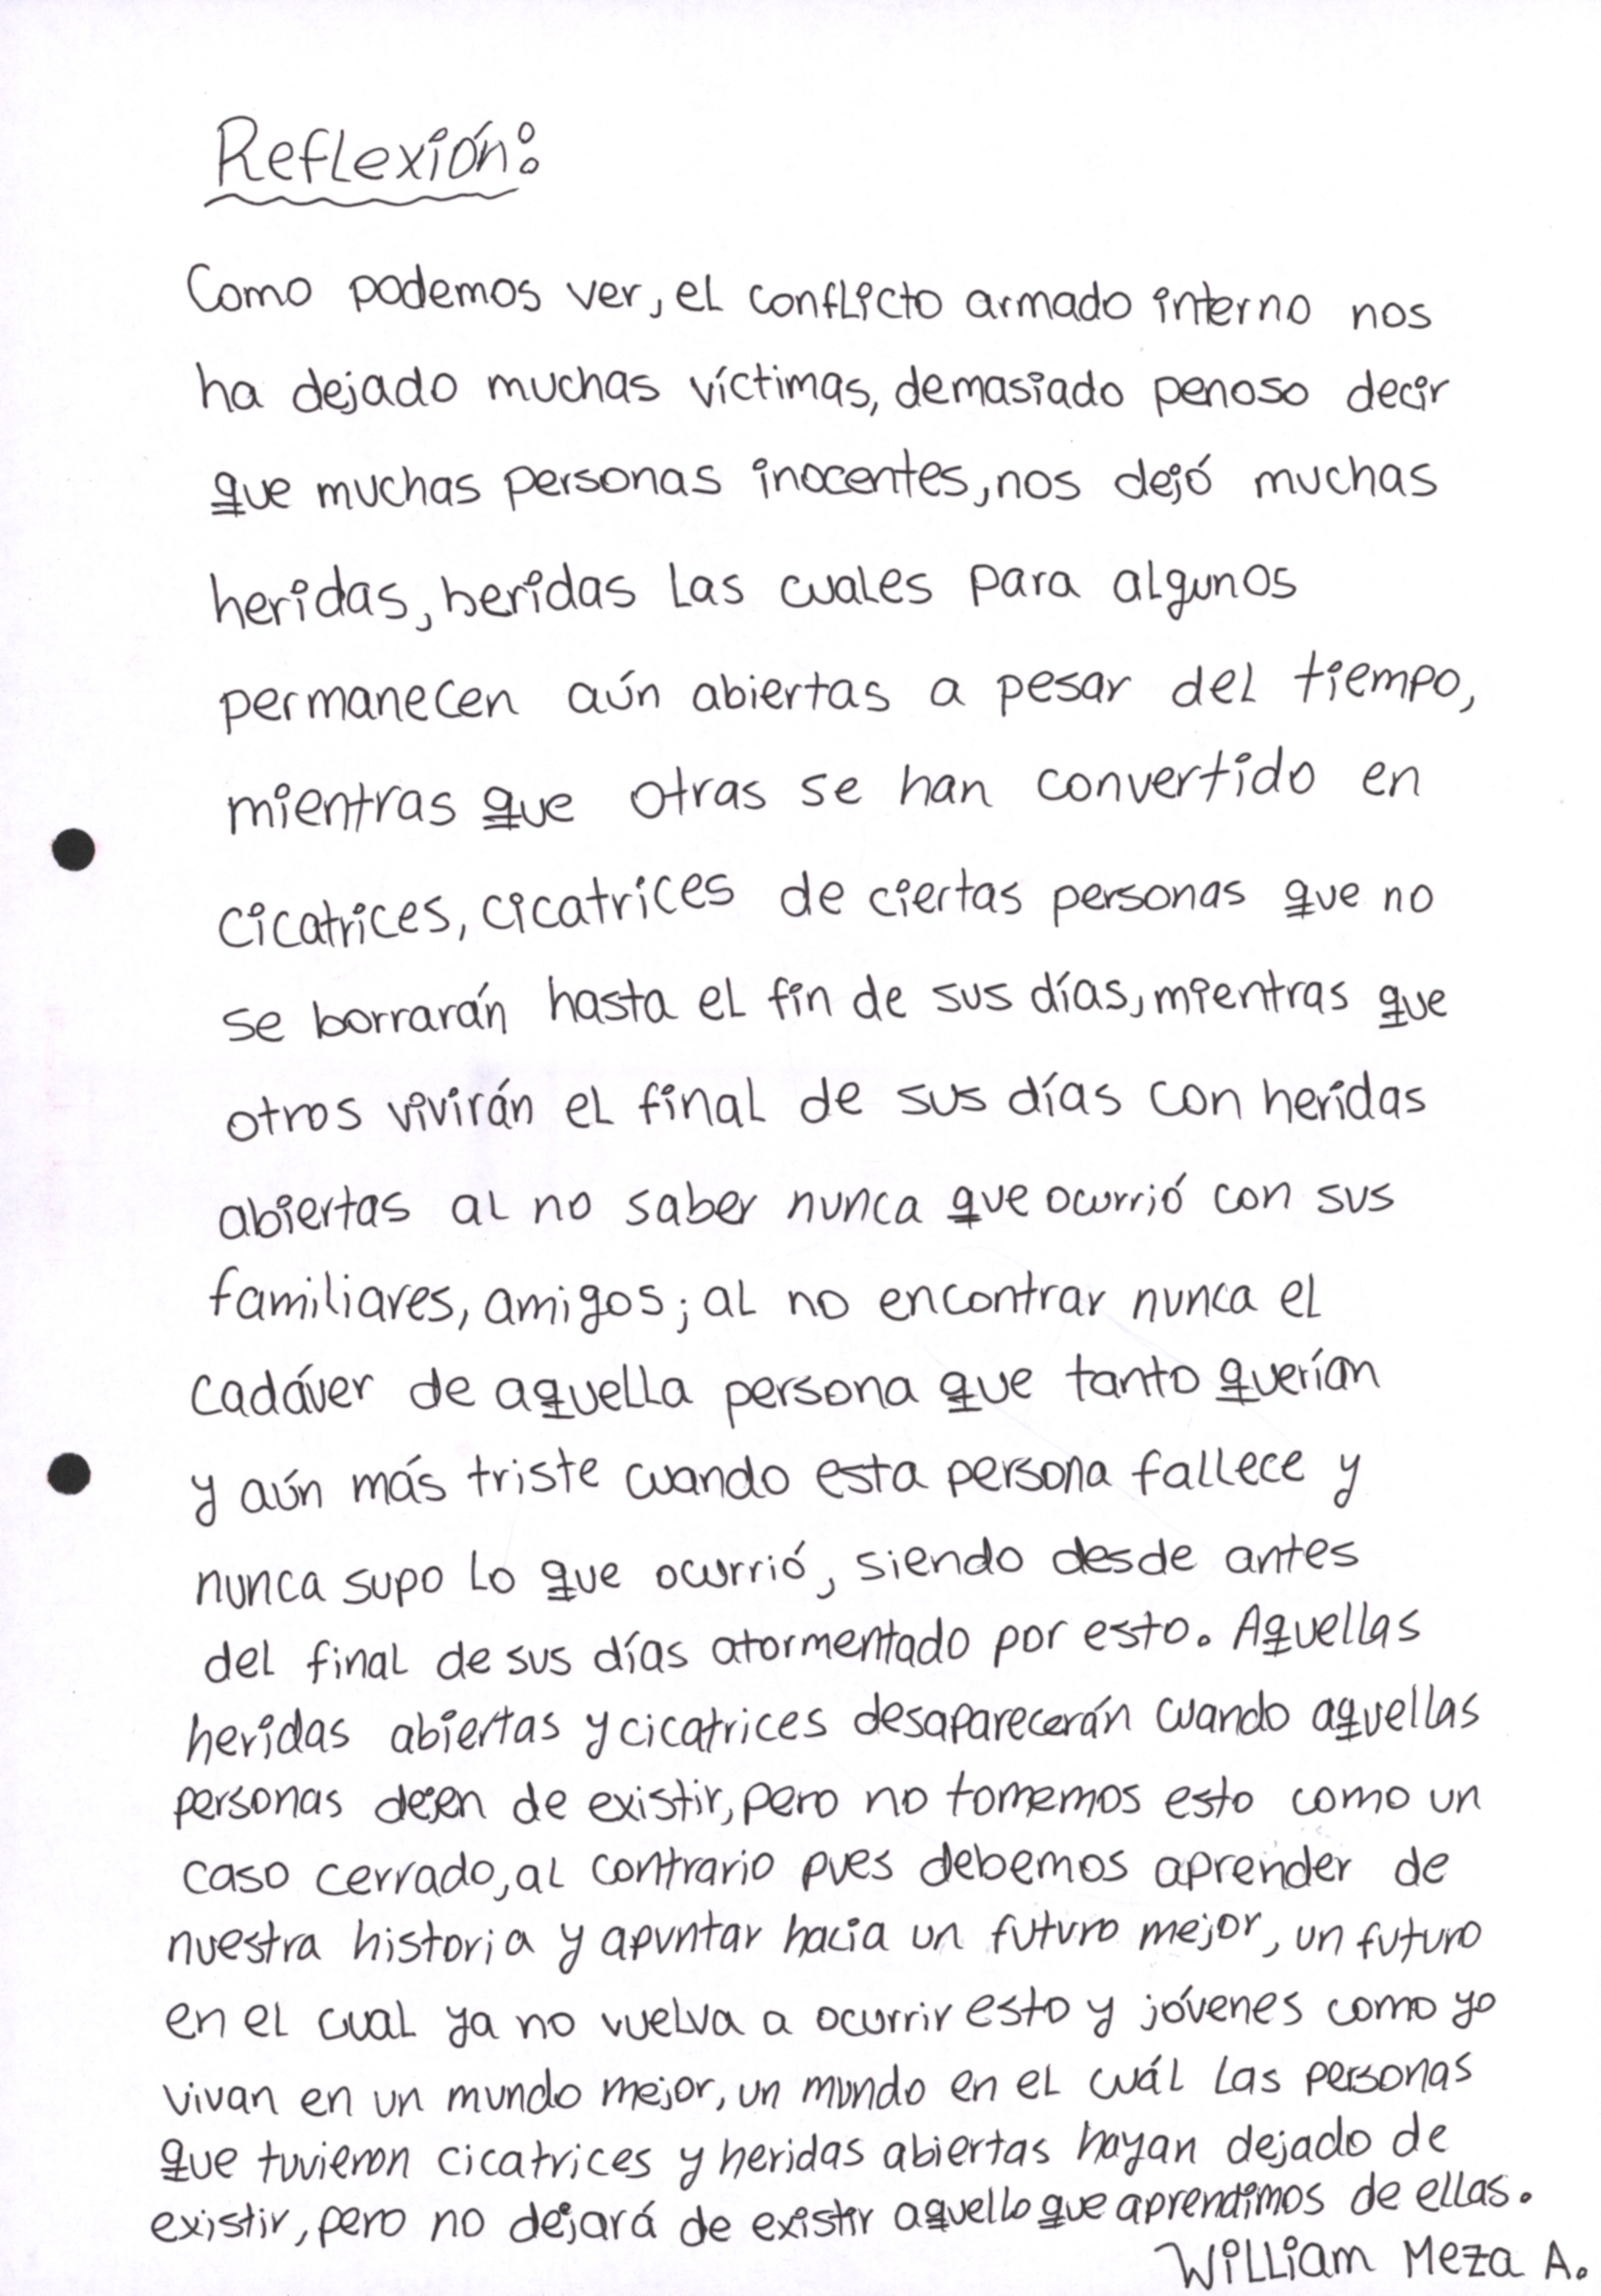 Reflexión:
Como podemos ver, el conflicto armado interno nos
ha dejado muchas víctimas, demasiado penoso decir
que muchas personas inocentes, nos dejó muchas
heridas, heridas las cuales para algunos
permanecen aún abiertas a pesar del tiempo,
mientras que otras se han convertido en
cicatrices, cicatrices de ciertas personas que no
se borrarán hasta el fin de sus días, mientras que
otros vivirán el final de sus días con heridas
abiertas al no saber nunca que ocurrió con sus
familiares, amigos; al no encontrar nunca el
cadáver de aquella persona que tanto querían
y aún más triste cuando esta persona fallece y
nunca supo lo que ocurrió, siendo desde antes
del final de sus días atormentado por esto. Aquellas
heridas abiertas y cicatrices desaparecerán cuando aquellas
personas dejen de existir, pero no tomemos esto como un
caso cerrado, al contrario pues debemos aprender de
nuestra historia y apuntar hacia un futuro mejor, un futuro
en el cual ya no vuelva a ocurrir esto y jóvenes como yo
vivan en un mundo mejor, un mundo en el cuál las personas
que tuvieron cicatrices y heridas abiertas hayan dejado de
existir, pero no dejará de existir aquello que aprendimos de ellas.
William Meza A.